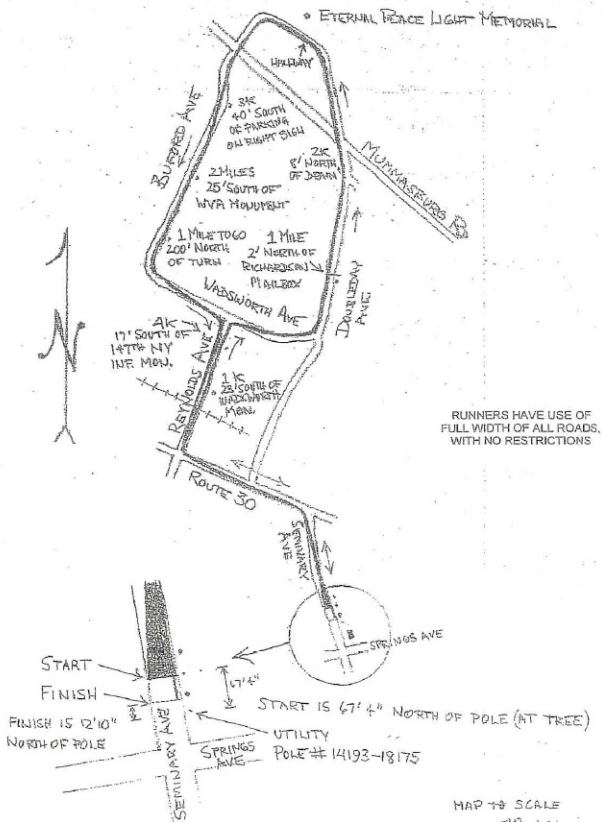 ETERNAL PEACE LIGHT MEMORIAL
HALFWAY
BUFORD AVE
3K
40' SOUTH
OF PARKING
ON RIGHT SIGN
MUMMASBURG RD
2K
8' NORTH
OF DEAN
2 MILES
25' SOUTH OF
WVA MONUMENT
1 MILE TO GO
200' NORTH
OF TURN
1 MILE
2' NORTH OF
RICHARDSON
MAILBOX
DOUBLEDAY
AVE.
WADSWORTH AVE
N
4K
17' SOUTH OF
147TH NY
INF. MON.
REYNOLDS AVE
1K
23' SOUTH OF
WADSWORTH
MON.
RUNNERS HAVE USE OF
FULL WIDTH OF ALL ROADS,
WITH NO RESTRICTIONS
ROUTE 30
SEMINARY
AVE
SPRINGS AVE
START
FINISH
67' 4"
START IS 67' 4" NORTH OF POLE (AT TREE)
FINISH IS 12'10"
NORTH OF POLE
UTILITY
POLE # 14193-18175
SPRINGS
AVE
SEMINARY AVE
MAP TO SCALE